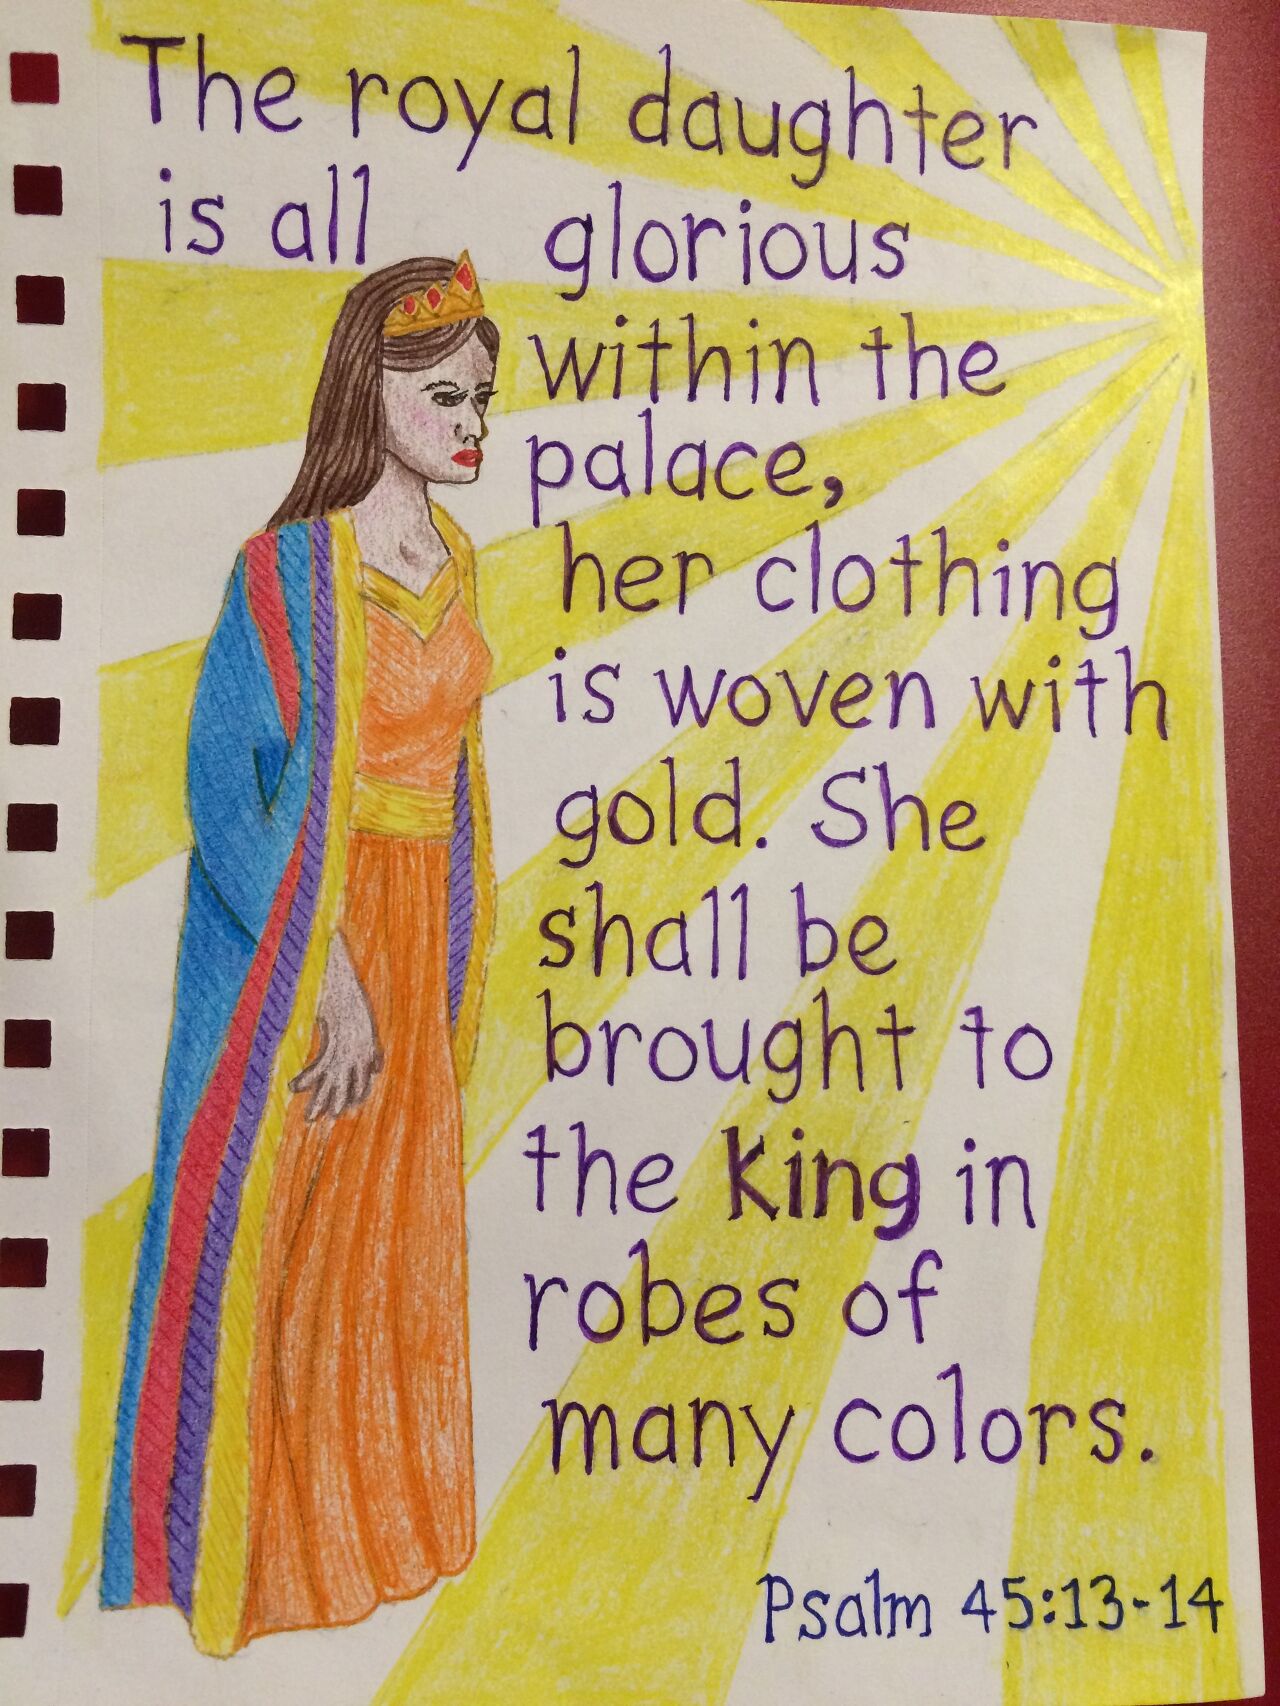 The royal daughter
is all glorious
within the
palace,
her clothing
is woven with
gold. She
shall be
brought to
the King in
robes of
many colors.
Psalm 45:13-14